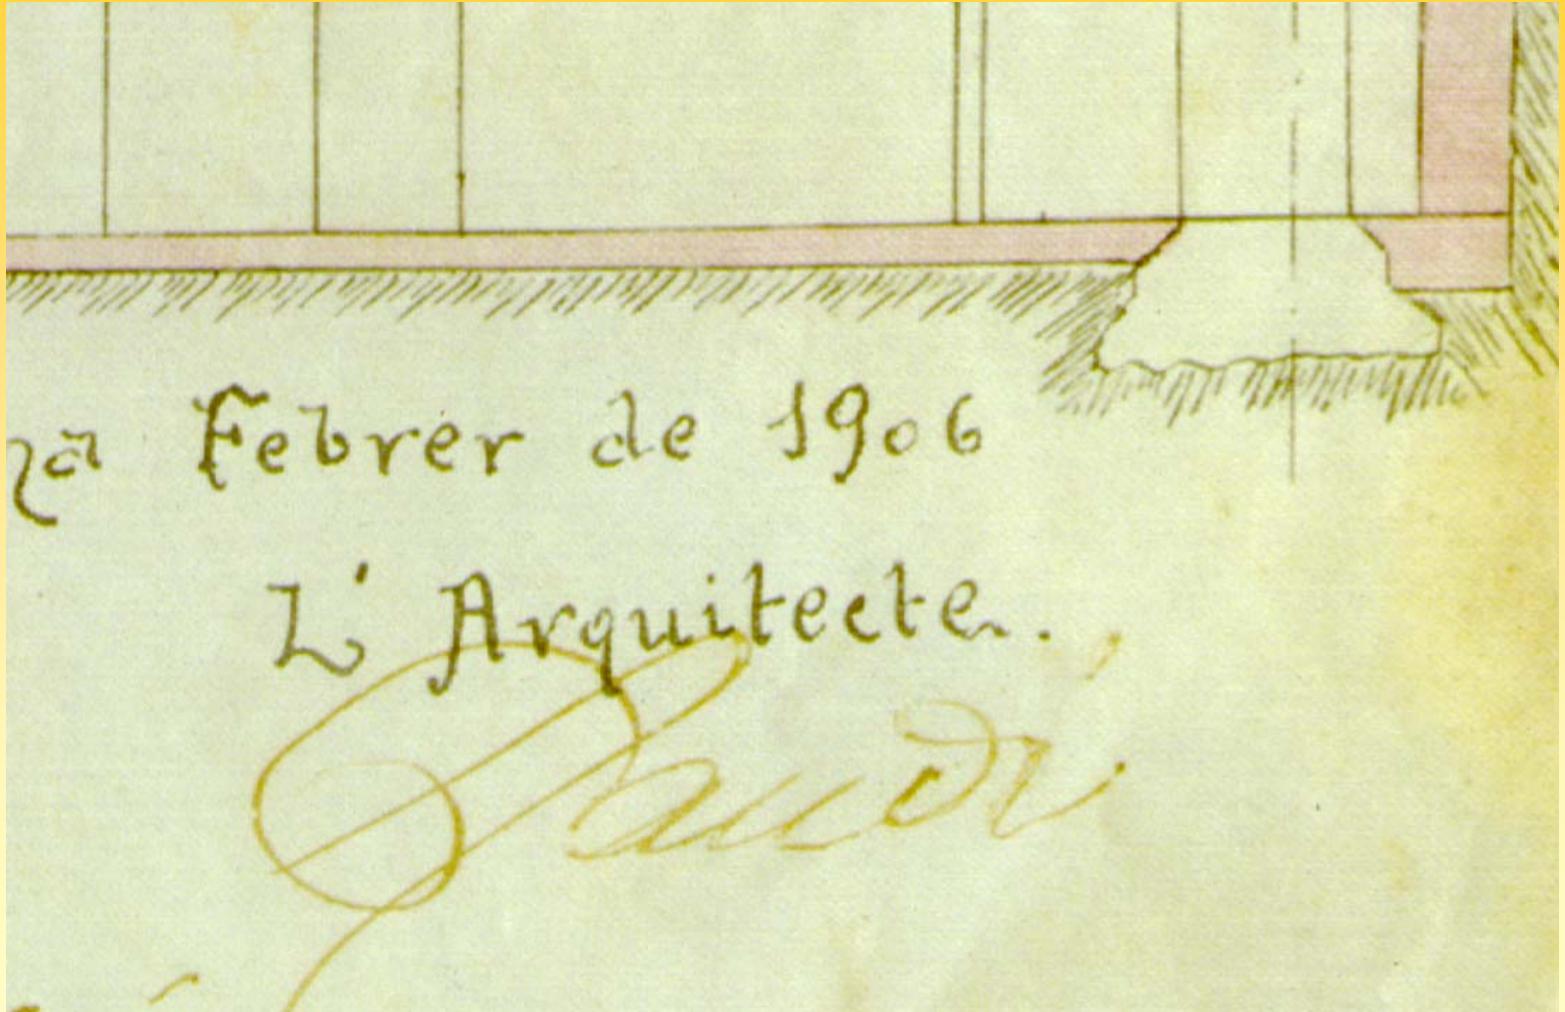 Febrer de 1906
L' Arquitecte.
Gaudí